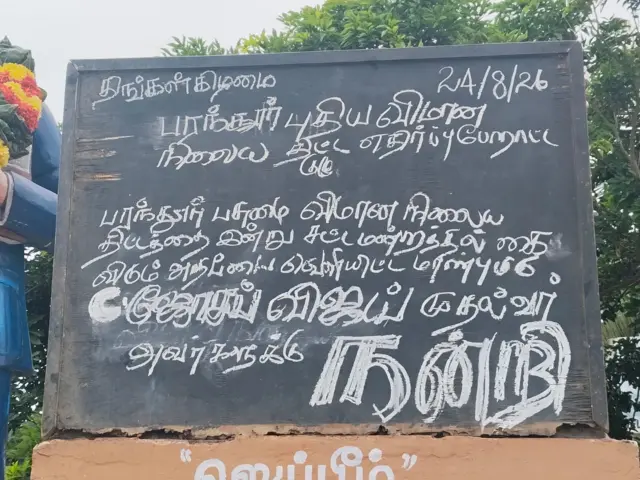 திங்கள்கிழமை 24/8/26
பரந்தூர் புதிய விமான
நிலைய திட்ட எதிர்ப்புபோறாட்ட
குழு
பரந்தூர் பசுமை விமான நிலைய
திட்டத்தை இன்று சட்டமன்றத்தில் கை
விடும் அறிவிப்பை வெளியிட்ட மாண்புமிகு
C.ஜோசப் விஜய் முதல்வர்
அவர்களுக்கு நன்றி
"ஜெய்பீம்"